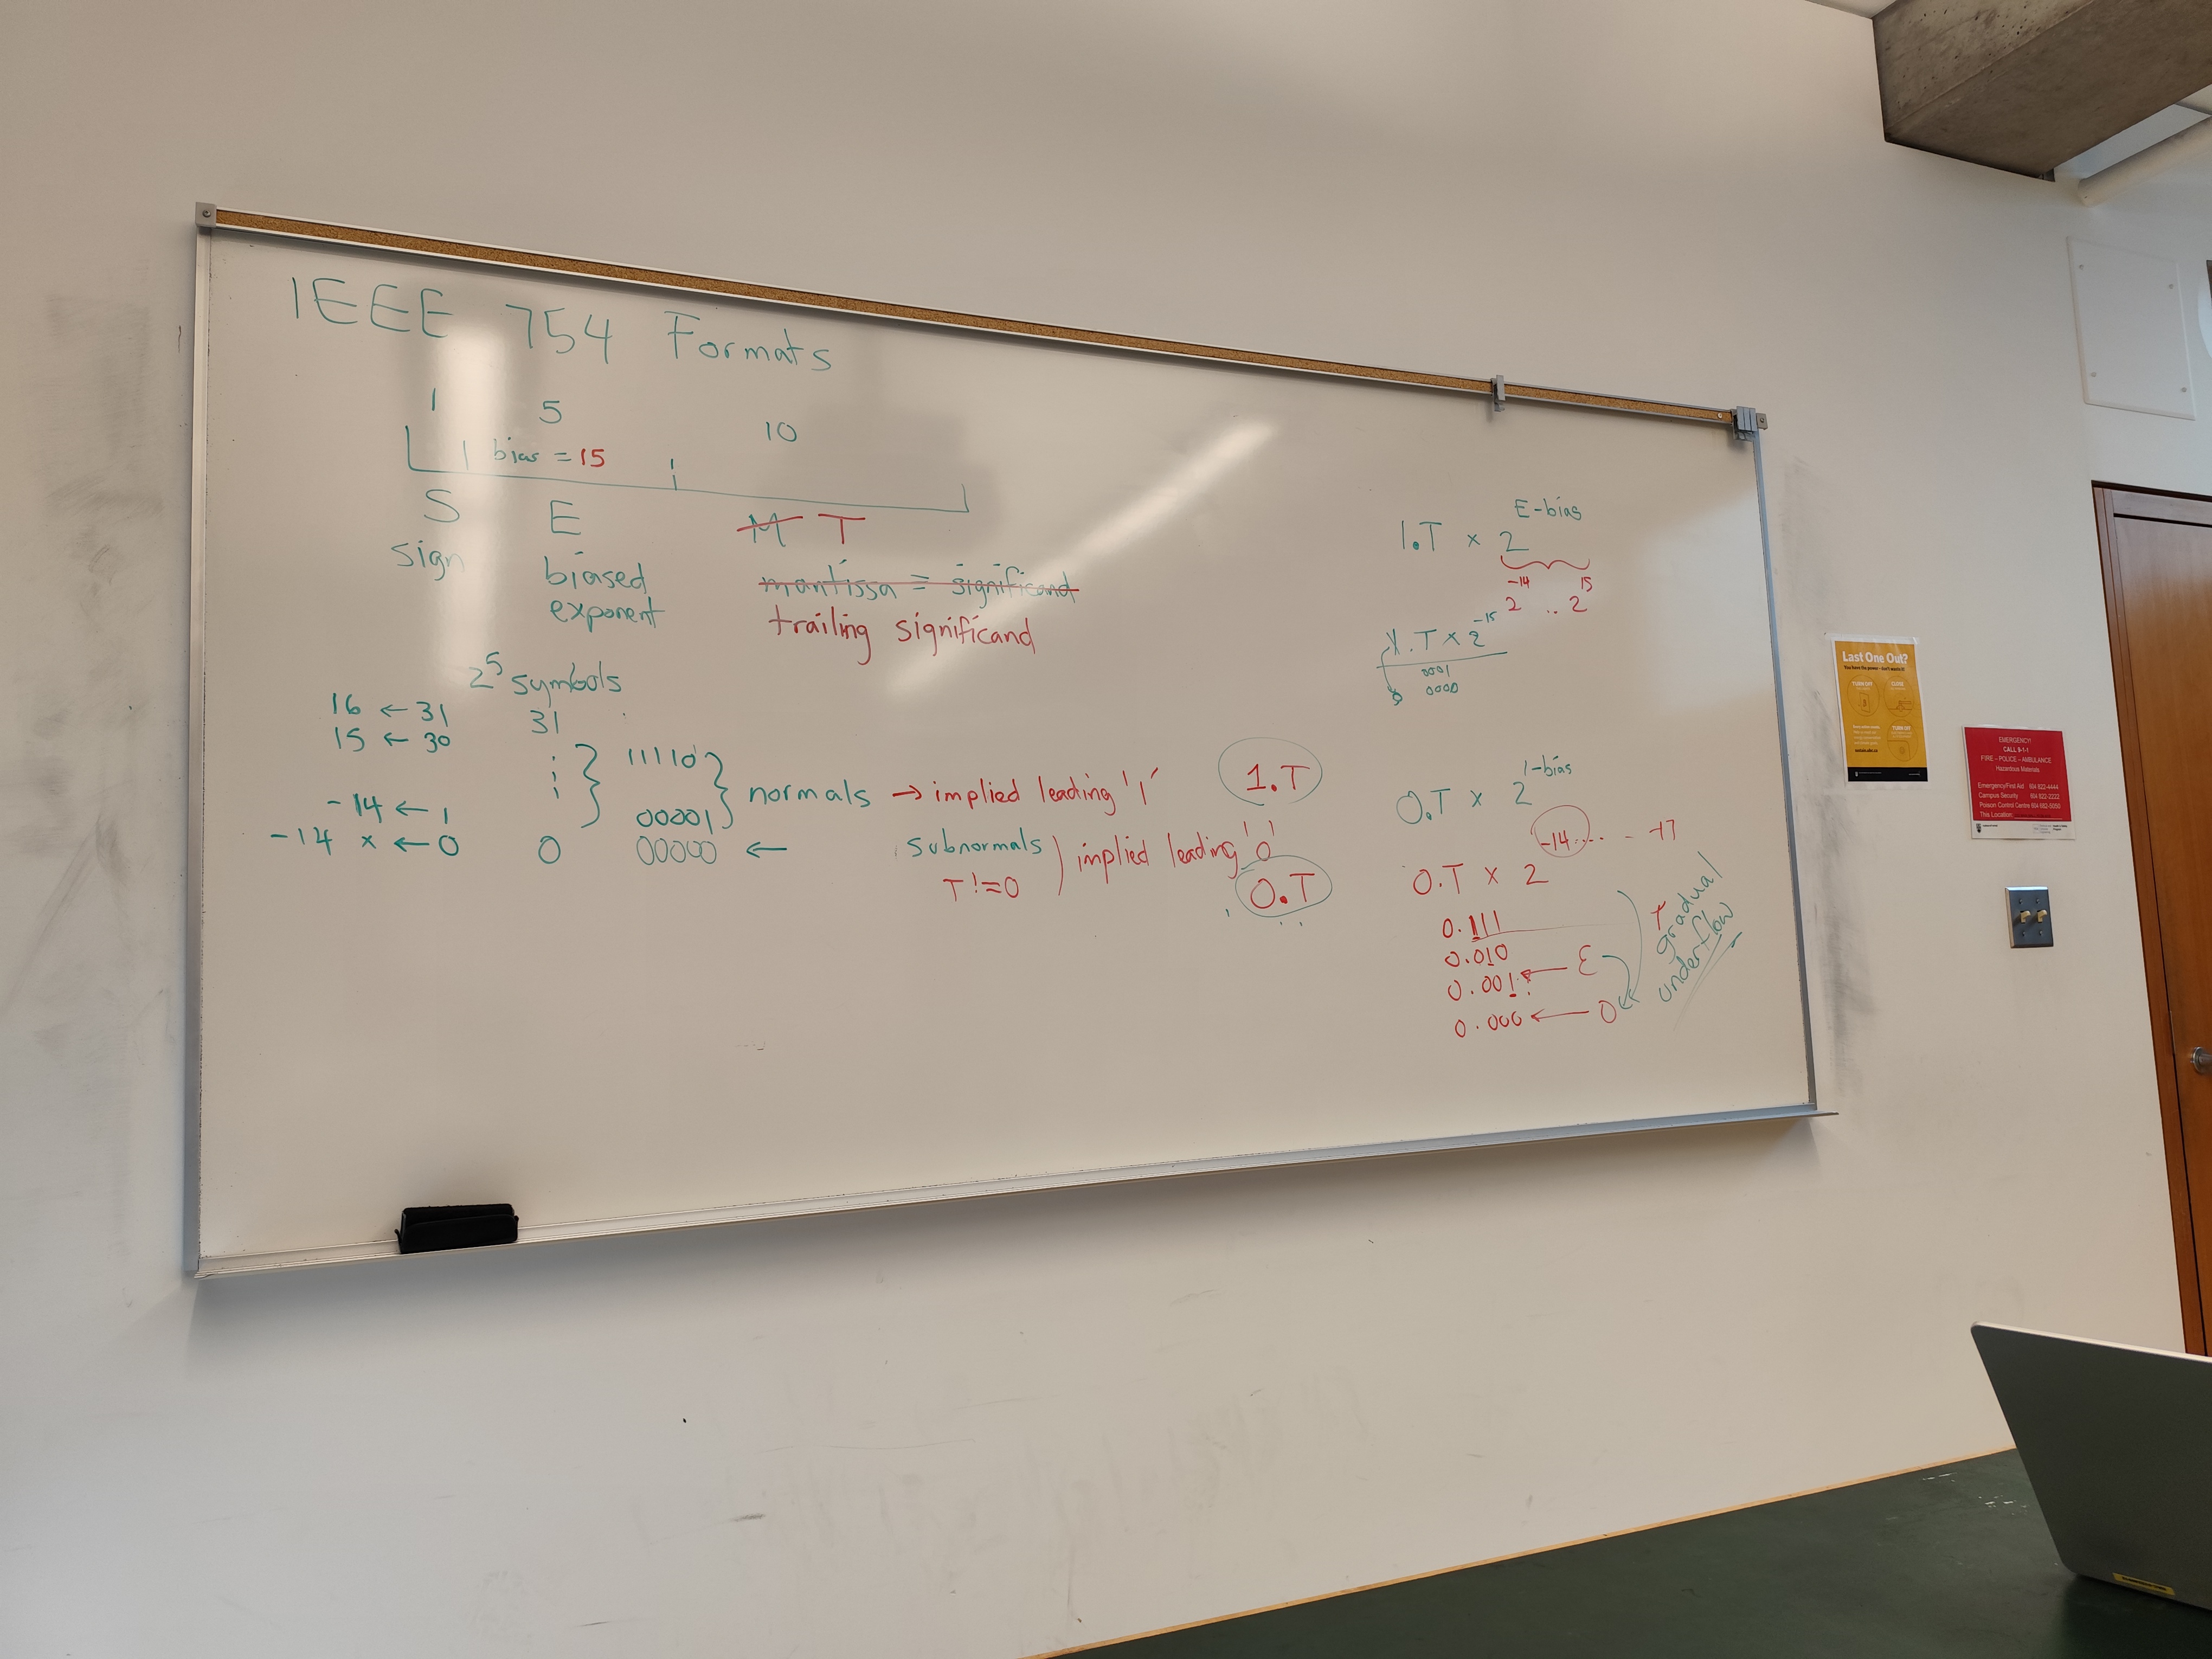 IEEE 754 Formats
1 5 10
bias = 15
S E M T
sign biased exponent
mantissa = significand
trailing significand
2^5 symbols
16 ← 31 31
15 ← 30
11110
-14 ← 1 00001
normals → implied leading '1' 1.T
-14 x ← 0 0 00000 ←
subnormals
T!=0
implied leading '0'
0.T
1.T × 2^E-bias
2^-14 .. 2^15
1.T × 2^-15
0001
0000
0.T × 2^1-bias
-14 .... -17
0.T × 2
0.111
0.010
0.001 ← ε
0.000 ← 0
gradual
underflow
Last One Out?
You have the power - don't waste it!
TURN OFF
CLOSE
TURN OFF
EMERGENCY!
CALL 9-1-1
FIRE - POLICE - AMBULANCE
Hazardous Materials
Emergency/First Aid 604 822-4444
Campus Security 604 822-2222
Poison Control Centre 604 682-5050
This Location: